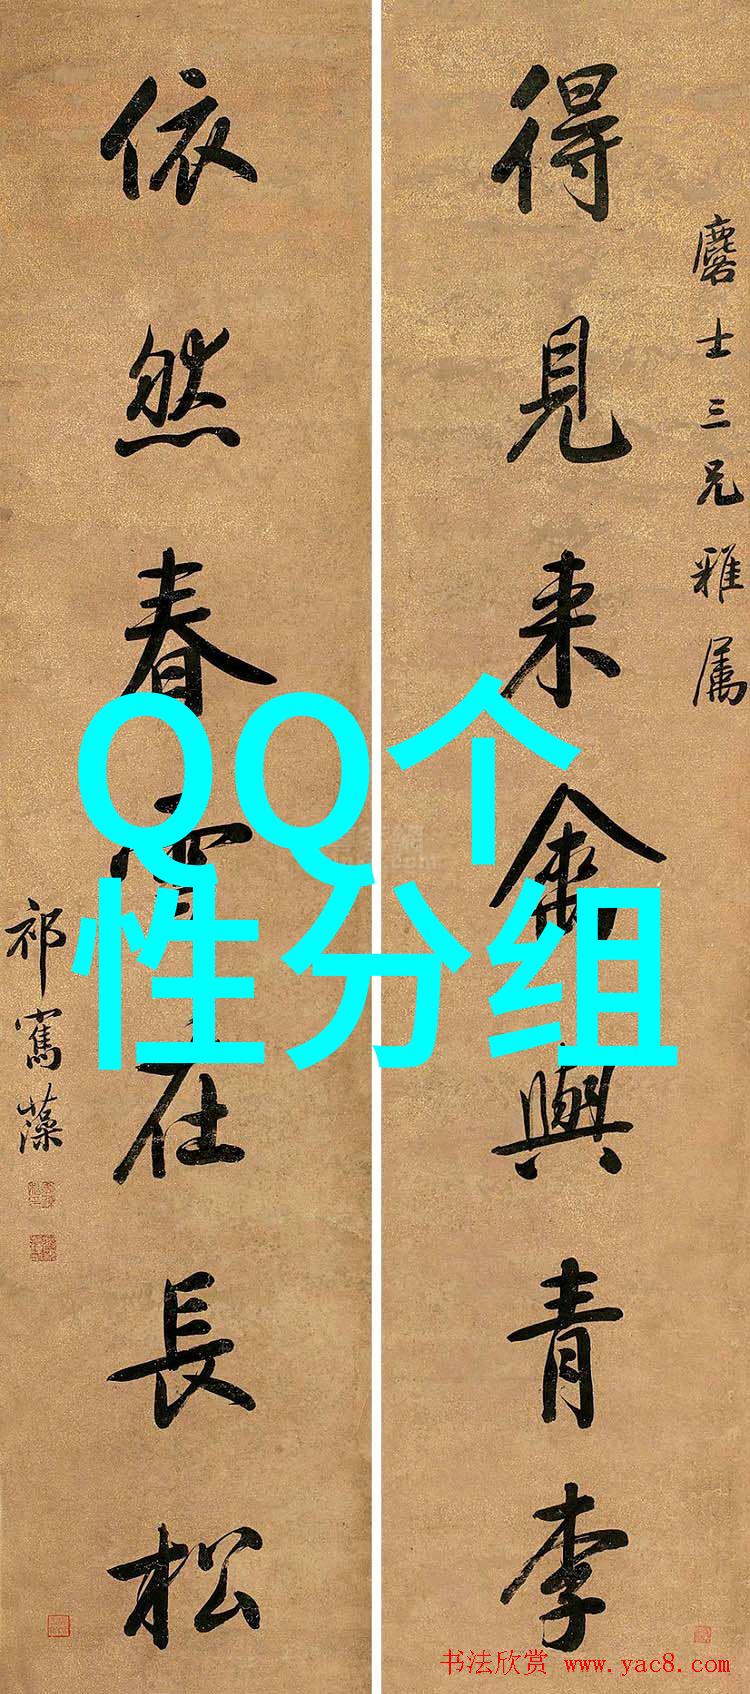 得見来禽與青李
麐士三兄雅属
依然春雪在長松
祁寯藻
QQ个
性分组
书法欣赏 www.yac8.com